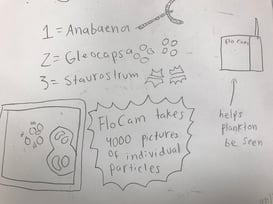 1 = Anabaena
Flo Cam
2 = Gleocapsa
3 = Staurastrum
FloCam takes
4000 pictures
of individual
particles
helps
plankton
be seen